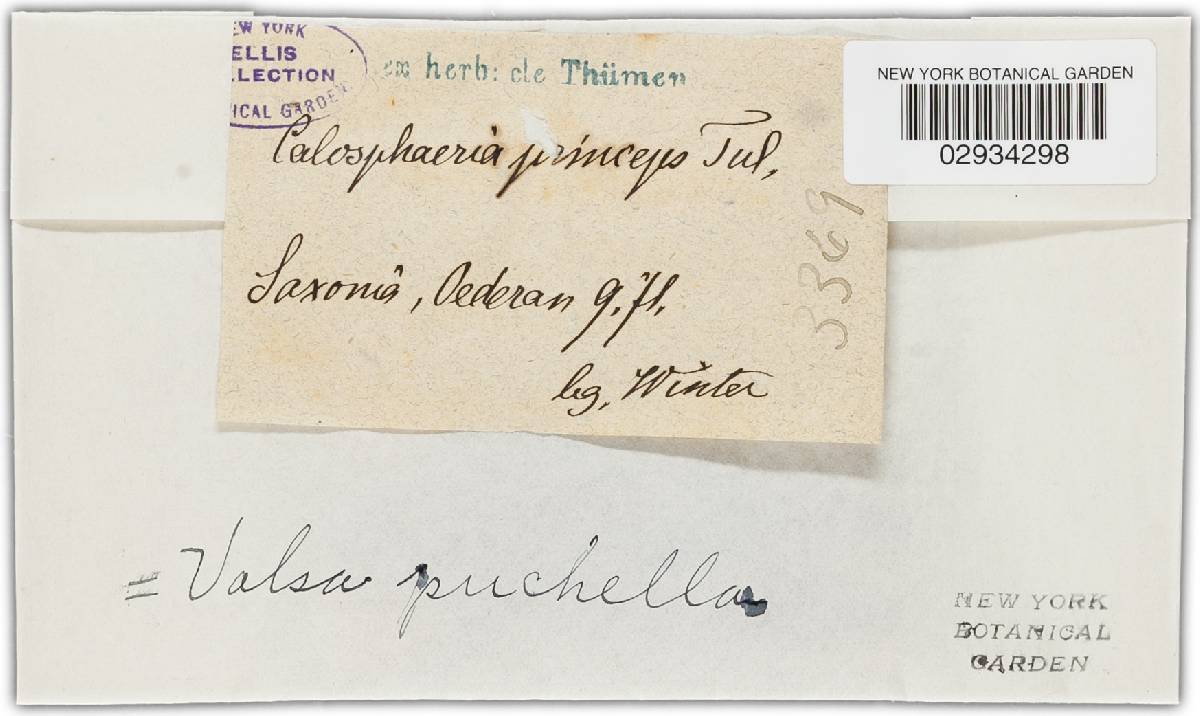 EW YORK
ELLIS
LLECTION
ICAL GARDEN
ex herb: de Thümen
NEW YORK BOTANICAL GARDEN
02934298
Calosphaeria princeps Tul,
3369
Saxonia, Oederan 9.71.
leg, Winter
= Valsa puchella
NEW YORK
BOTANICAL
GARDEN